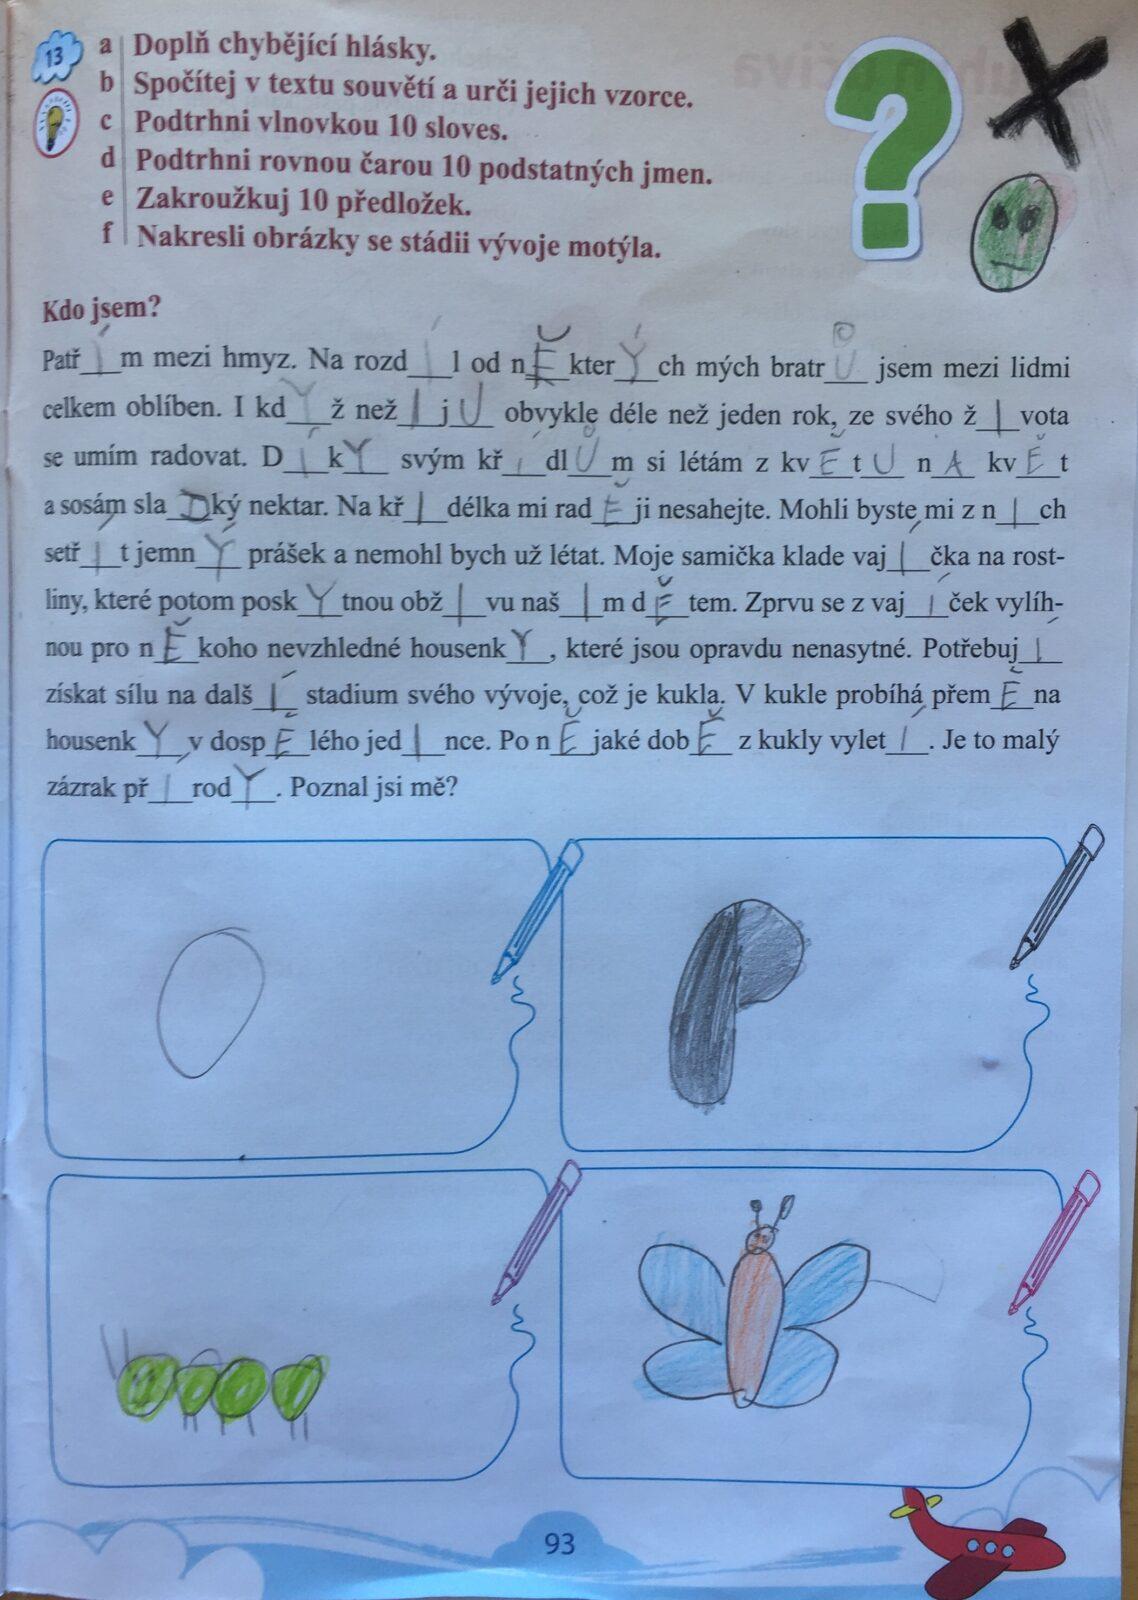 13
a Doplň chybějící hlásky.
b Spočítej v textu souvětí a urči jejich vzorce.
c Podtrhni vlnovkou 10 sloves.
d Podtrhni rovnou čarou 10 podstatných jmen.
e Zakroužkuj 10 předložek.
f Nakresli obrázky se stádii vývoje motýla.
?
Kdo jsem?
PatřÍm mezi hmyz. Na rozdÍl od nĚkterÝch mých bratrŮ jsem mezi lidmi
celkem oblíben. I kdYž nežIjU obvykle déle než jeden rok, ze svého žIvota
se umím radovat. DÍkY svým křÍdlŮm si létám z kvĚtU nA kvĚt
a sosám slaDký nektar. Na křIdélka mi radĚji nesahejte. Mohli byste mi z nIch
setřÍt jemnÝ prášek a nemohl bych už létat. Moje samička klade vajÍčka na rost-
liny, které potom poskYtnou obžIvu našIm dĚtem. Zprvu se z vajÍček vylíh-
nou pro nĚkoho nevzhledné housenkY, které jsou opravdu nenasytné. PotřebujI
získat sílu na dalšÍ stadium svého vývoje, což je kukla. V kukle probíhá přemĚna
housenkY v dospĚlého jedInce. Po nĚjaké dobĚ z kukly vyletÍ. Je to malý
zázrak přÍrodY. Poznal jsi mě?
93